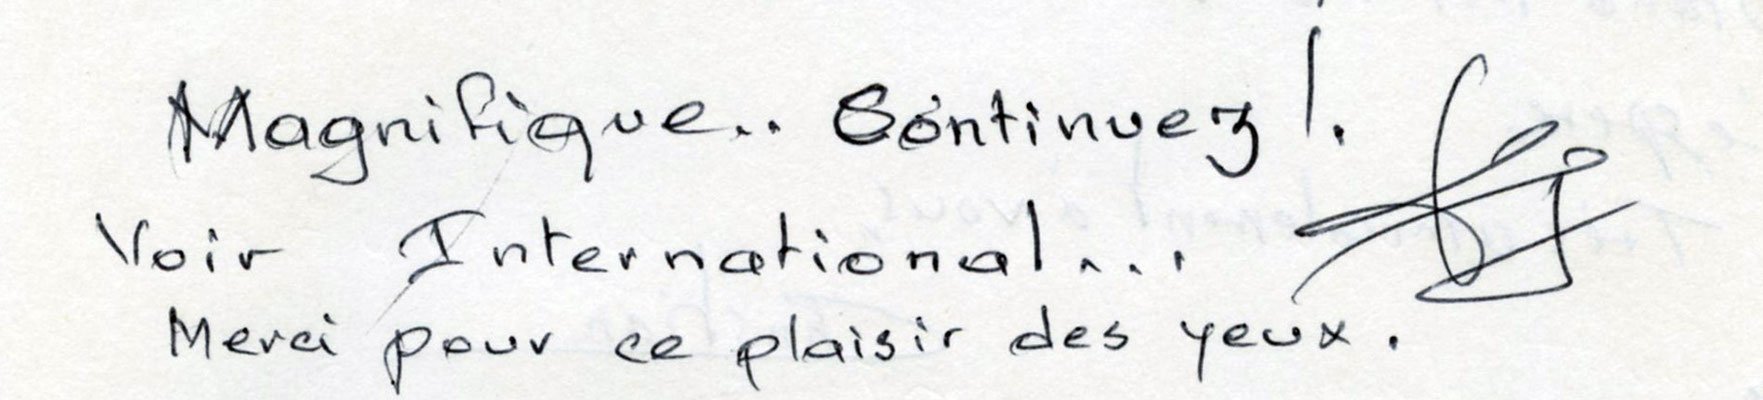 Magnifique.. Continuez !.
Voir International...
Merci pour ce plaisir des yeux.